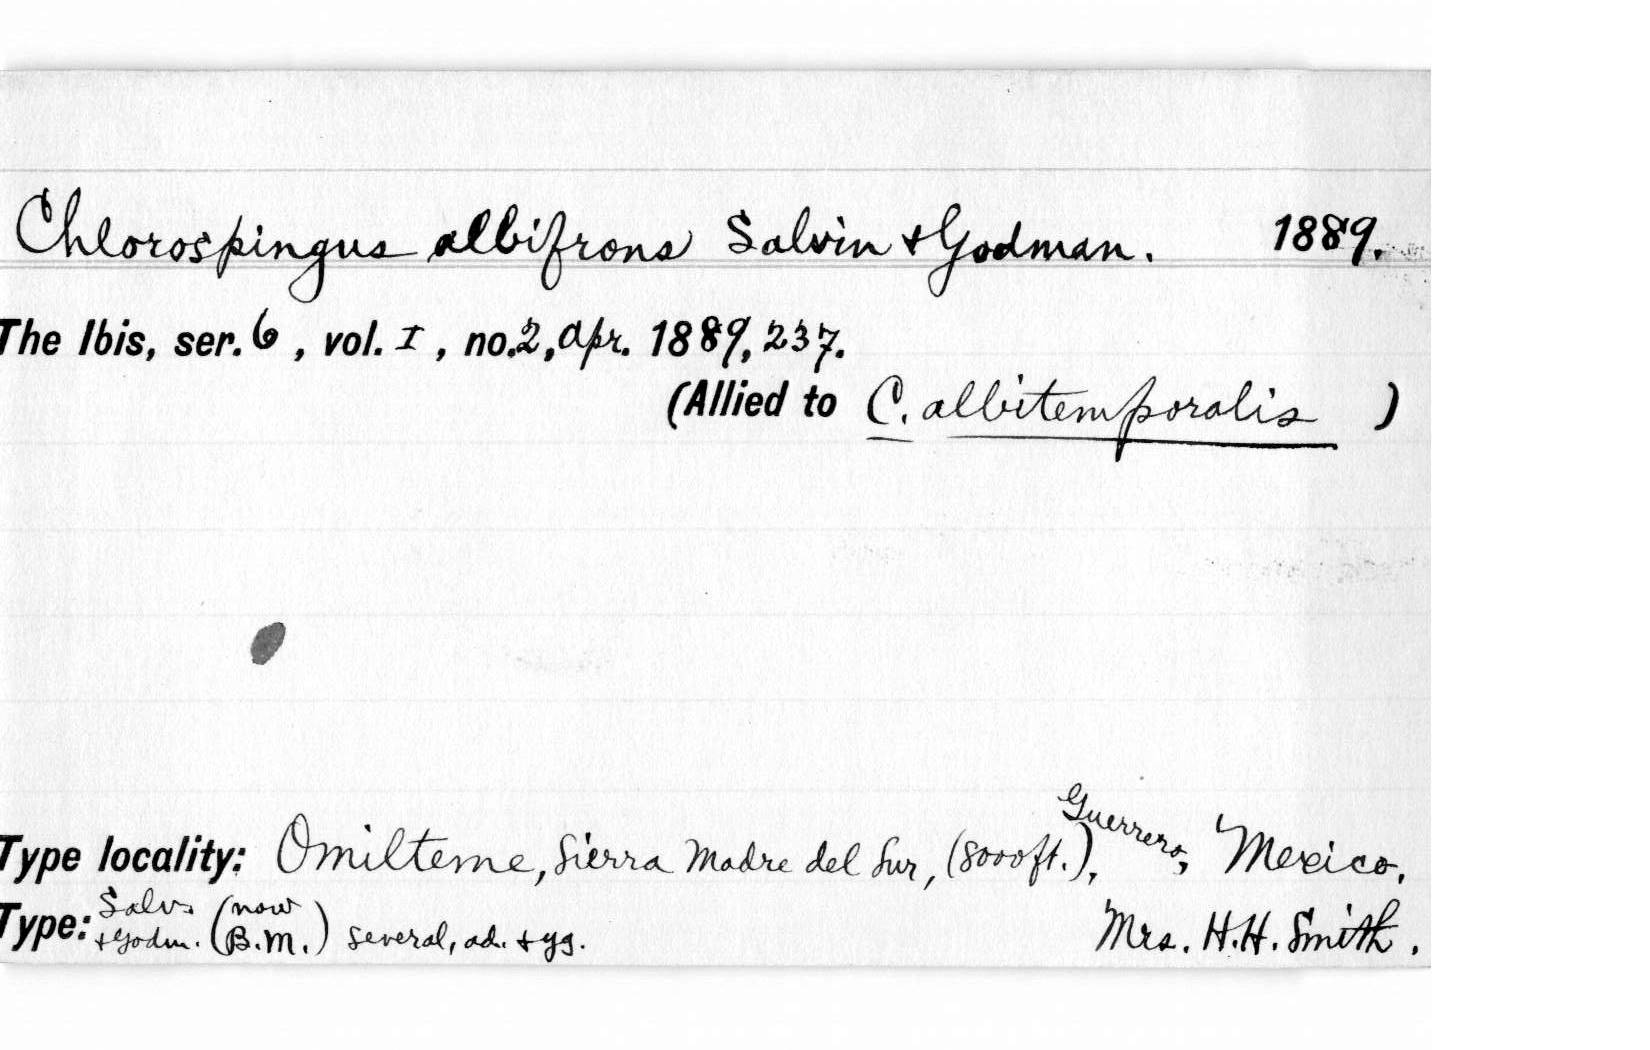 Chlorospingus albifrons Salvin + Godman. 1889.
The Ibis, ser. 6, vol. I, no. 2, Apr. 1889, 237.
(Allied to C. albitemporalis )
Type locality: Omilteme, Sierra Madre del Sur, (8000 ft.), Guerrero, Mexico.
Type: Salv. + Godm. (now B.M.) several, ad. + yg. Mrs. H.H. Smith.